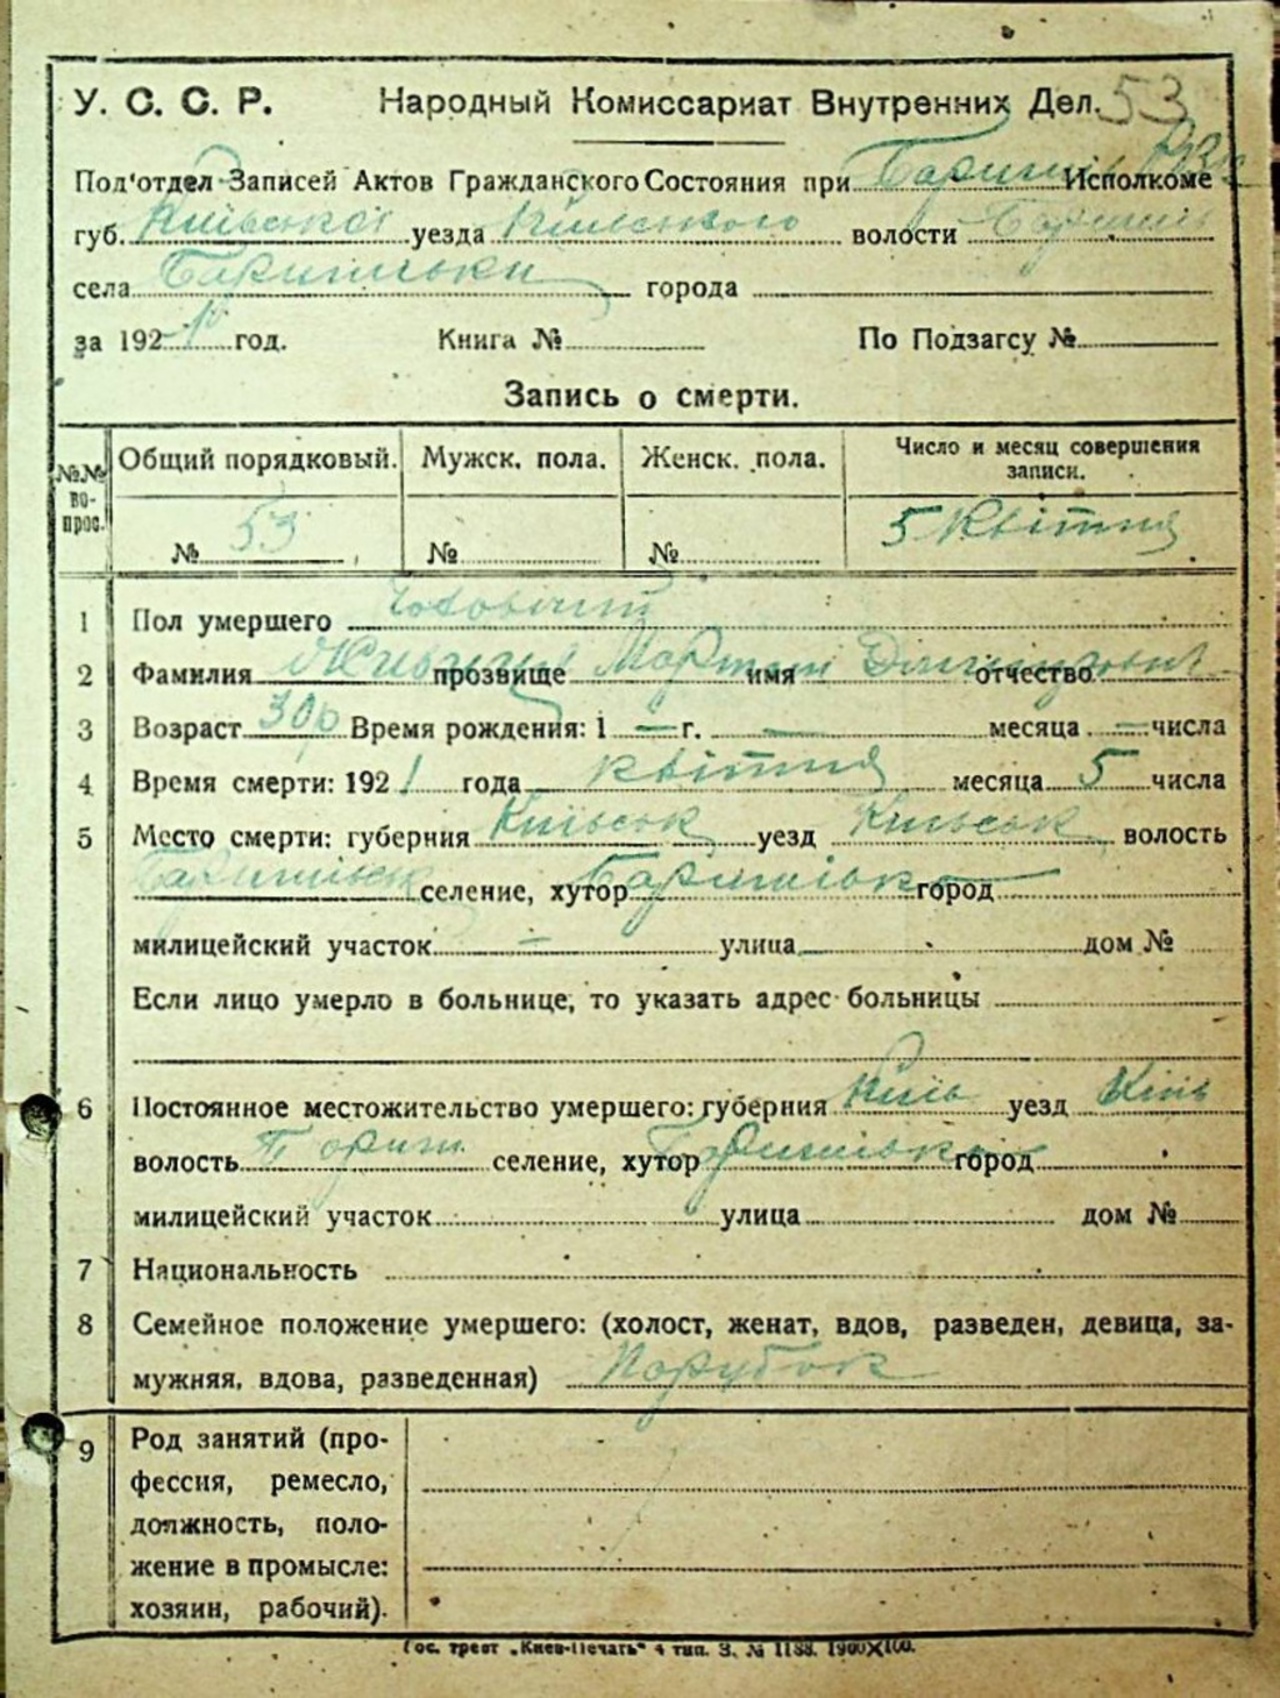 У. С. С. Р. Народный Комиссариат Внутренних Дел. 53
Под'отдел Записей Актов Гражданского Состояния при Исполкоме
губ. Київської уезда Київського волости
села Баришівки города
за 1921 год. Книга № По Подзагсу №
Запись о смерти.
№№ вопрос. Общий порядковый. Мужск. пола. Женск. пола. Число и месяц совершения записи.
№ 53 № № 5 Квітня
1 Пол умершего Чоловічий
2 Фамилия прозвище Мартин имя отчество
3 Возраст 30 р Время рождения: 1 — г. — месяца — числа
4 Время смерти: 1921 года квітня месяца 5 числа
5 Место смерти: губерния Київськ уезд Київськ волость
Баришівськ селение, хутор Баришівка город
милицейский участок — улица дом №
Если лицо умерло в больнице, то указать адрес больницы
6 Постоянное местожительство умершего: губерния Київ уезд Київ
волость Бориш селение, хутор Баришівка город
милицейский участок улица дом №
7 Национальность
8 Семейное положение умершего: (холост, женат, вдов, разведен, девица, за-
мужняя, вдова, разведенная) Парубок
9 Род занятий (про-
фессия, ремесло,
должность, поло-
жение в промысле:
хозяин, рабочий).
Гос. трест „Киев-Печать" 4 тип. З. № 1188. 1900X100.